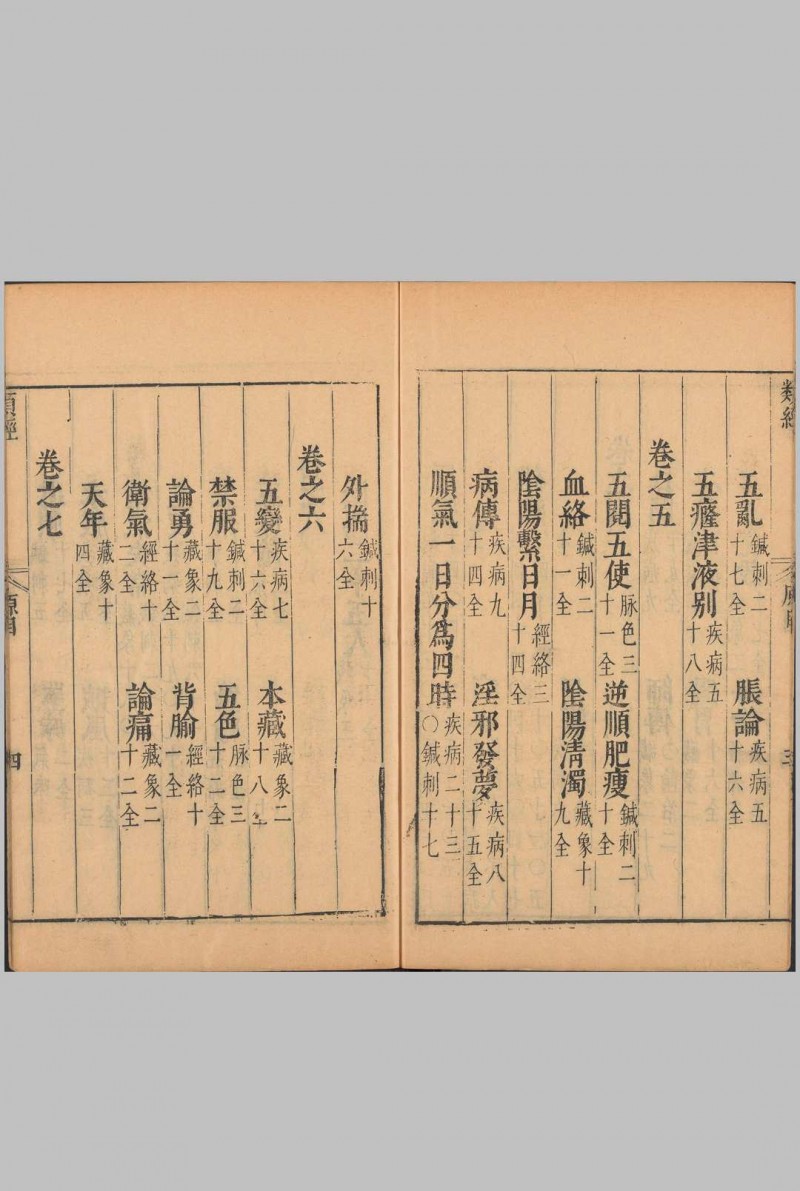 類經
五亂鍼刺二十七全 脹論疾病五十六全
五癃津液别疾病五十八全
卷之五
五閱五使脉色三十一全 逆順肥瘦鍼刺二十全
血絡鍼刺二十一全 陰陽清濁藏象十九全
陰陽繫日月經絡三十四全
病傳疾病九十四全 淫邪發夢疾病八十五全
順氣一日分爲四時疾病二十三〇鍼刺十七
外揣鍼刺十六全
卷之六
五變疾病七十六全 本藏藏象二十八全
禁服鍼刺二十九全 五色脉色三十二全
論勇藏象二十一全 背腧經絡十一全
衛氣經絡十二全 論痛藏象二十二全
天年藏象十四全
卷之七
類經
四